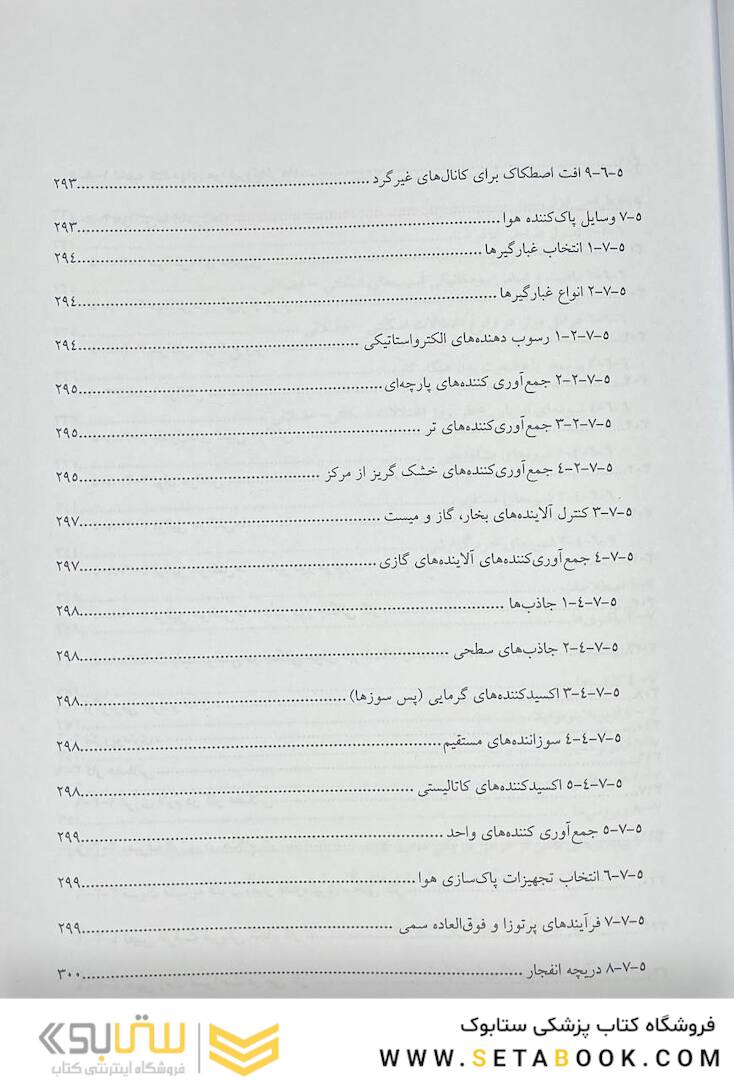 ۵-۶-۹ افت اصطکاک برای کانال‌های غیرگرد ...............................................................۲۹۳
۵-۷ وسایل پاک‌کننده هوا ...............................................................۲۹۳
۵-۷-۱ انتخاب غبارگیرها ...............................................................۲۹۴
۵-۷-۲ انواع غبارگیرها ...............................................................۲۹۴
۵-۷-۲-۱ رسوب دهنده‌های الکترواستاتیکی ...............................................................۲۹۴
۵-۷-۲-۲ جمع‌آوری کننده‌های پارچه‌ای ...............................................................۲۹۵
۵-۷-۲-۳ جمع‌آوری‌کننده‌های تر ...............................................................۲۹۵
۵-۷-۲-۴ جمع‌آوری‌کننده‌های خشک گریز از مرکز ...............................................................۲۹۵
۵-۷-۳ کنترل آلاینده‌های بخار، گاز و میست ...............................................................۲۹۷
۵-۷-۴ جمع‌آوری‌کننده‌های آلاینده‌های گازی ...............................................................۲۹۷
۵-۷-۴-۱ جاذب‌ها ...............................................................۲۹۸
۵-۷-۴-۲ جاذب‌های سطحی ...............................................................۲۹۸
۵-۷-۴-۳ اکسیدکننده‌های گرمایی (پس سوزها) ...............................................................۲۹۸
۵-۷-۴-۴ سوزاننده‌های مستقیم ...............................................................۲۹۸
۵-۷-۴-۵ اکسیدکننده‌های کاتالیستی ...............................................................۲۹۸
۵-۷-۵ جمع‌آوری کننده‌های واحد ...............................................................۲۹۹
۵-۷-۶ انتخاب تجهیزات پاک‌سازی هوا ...............................................................۲۹۹
۵-۷-۷ فرآیندهای پرتوزا و فوق‌العاده سمی ...............................................................۲۹۹
۵-۷-۸ دریچه انفجار ...............................................................۳۰۰
فروشگاه کتاب پزشکی ستابوک
WWW.SETABOOK.COM
ستابوک
فروشگاه اینترنتی کتاب